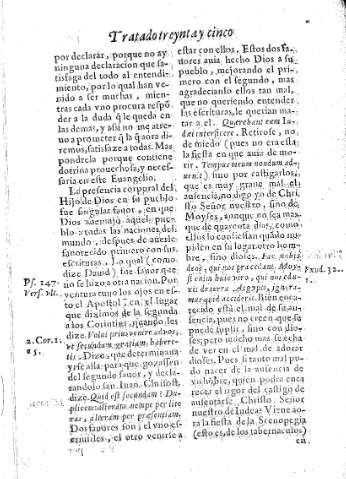 Tratado treynta y cinco
por declarar, porque no ay
ninguna declaracion que sa-
tisfaga del todo al entendi-
miento, por lo qual han ve-
nido a ser muchas, mien-
tras cada vno procura respõ-
der a la duda q̃ le queda en
las demas, y assi no me atre-
uo a prometer q̃ la que aora di-
remos, satisfaze a todas. Mas
pondrela porque contiene
dotrina prouechosa, y neces-
saria en este Euangelio.
La presencia corporal del
Hijo de Dios en su pueblo
fue singular fauor, en que
Dios auentajò aquel pue-
blo a todas las naciones del
mundo, despues de auerle
fauorecido primero con sus
escrituras. Lo qual (como
dize Dauid) fue fauor que
no se hizo a otra nacion. Por
ventura tuuo los ojos en es-
to el Apostol en el lugar
que diximos de la segunda
a los Corintios, quando les
dize. Volui prius venire ad vos,
vt secundam gratiam habere-
tis. Dize, que determinaua
yrse allà para que gozassen
del segundo fauor, y decla-
randolo san Iuan Chrisost.
dize. Quid est secundam? Du-
plicem, alteram nempe per lite
ras, alteram per præsentiam.
Dos fauores son, el vno es-
criuiles, el otro venirse a
Ps. 147.
Vers. vlt.
2. Cor. 1.
15.
estar con ellos. Estos dos fa-
uores auia hecho Dios a su
pueblo, mejorando el pri-
mero con el segundo, mas
agradecianlo ellos tan mal,
que no queriendo entender
las escrituras, le querian ma-
tar a el. Quærebant eum Iu-
dæi interficere. Retirose, no
de miedo (pues no era esta
la fiesta en que auia de mo-
rir. Tempus meum nondum ad-
uenit) sino por castigarlos,
que es muy grande mal el
ausencia, no digo yo de Chri-
sto Señor nuestro, sino de
Moyses, aunque no sea mas
que de quarenta dias, como
ellos lo confiessan quando
piden en su lugar otro hom-
bre, sino dioses. Fac nobis
deos, qui nos præcedant, Moysi
enim huic viro, qui nos edu-
xit de terra Aegypti, ignora-
mus quid acciderit. Bien enca-
recido està el mal de su au-
sencia, pues no creen que se
puede suplir, sino con dio-
ses, pero mucho mas se echa
de ver en el mal de adorar
dioses. Pues si tanto mal pu-
do nacer de la ausencia de
vn hõbre, quien podra enca-
recer el rigor del castigo de
ausentarse Christo Señor
nuestro de Iudea? Vinc aora
la fiesta de la Scenopegia
(esto es, de los tabernaculos)
en
Exod. 32.
1.